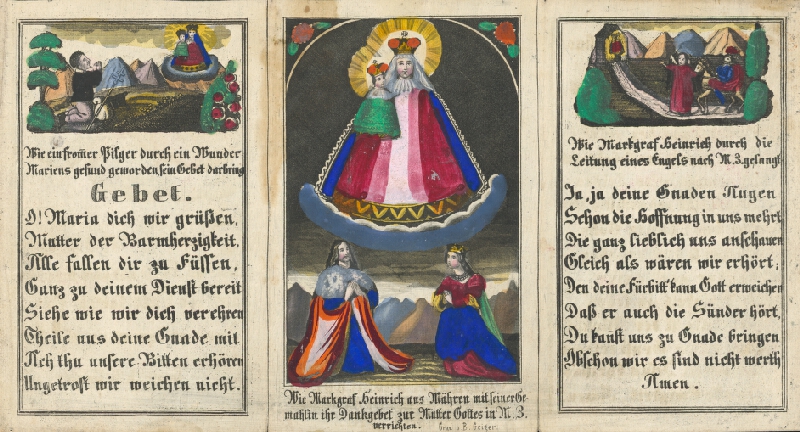 Wie ein from̅er Pilger durch ein Wunder
Mariens gesund geworden sein Gebet darbring
Gebet.
O! Maria dich wir grüßen,
Mutter der Barmherzigkeit,
Alle fallen dir zu Füssen,
Ganz zu deinem Dienst bereit
Siehe wie wir dich verehren
Theile aus deine Gnade mit
Ach thu unsere Bitten erhören
Ungetrost wir weichen nicht.
Wie Markgraf Heinrich aus Mähren mit seiner Ge-
mahlin ihr Dankgebet zur Mutter Gottes in M. Z.
verrichten.
B. Geiger.
Wie Markgraf Heinrich durch die
Leitung eines Engels nach M. Z. gelangt
Ja, ja deine Gnaden Augen
Schon die Hoffnung in uns mehrt,
Die ganz lieblich uns anschauen
Gleich als wären wir erhört;
Den deine Fürbitt' kann Gott erweichen
Daß er auch die Sünder hört,
Du kanst uns zu Gnade bringen
Obschon wir es sind nicht werth
Amen.